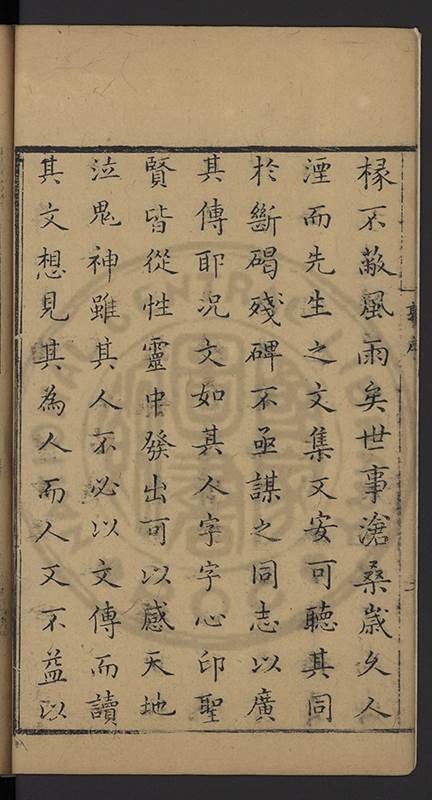 椽不蔽風雨矣世事滄桑歲久人
湮而先生之文集又安可聽其同
於斷碣殘碑不亟謀之同志以廣
其傳耶况文如其人字字心印聖
賢皆從性靈中發出可以感天地
泣鬼神雖其人不必以文傳而讀
其文想見其為人而人又不益以